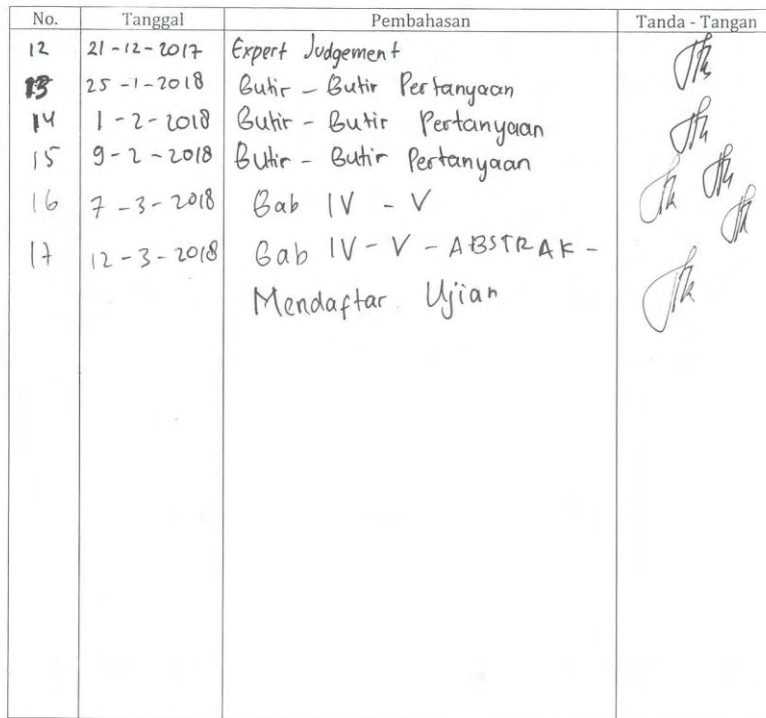 No. Tanggal Pembahasan Tanda - Tangan
12 21-12-2017 Expert Judgement
13 25-1-2018 Butir - Butir Pertanyaan
14 1-2-2018 Butir - Butir Pertanyaan
15 9-2-2018 Butir - Butir Pertanyaan
16 7-3-2018 Bab IV - V
17 12-3-2018 Bab IV - V - ABSTRAK -
Mendaftar Ujian